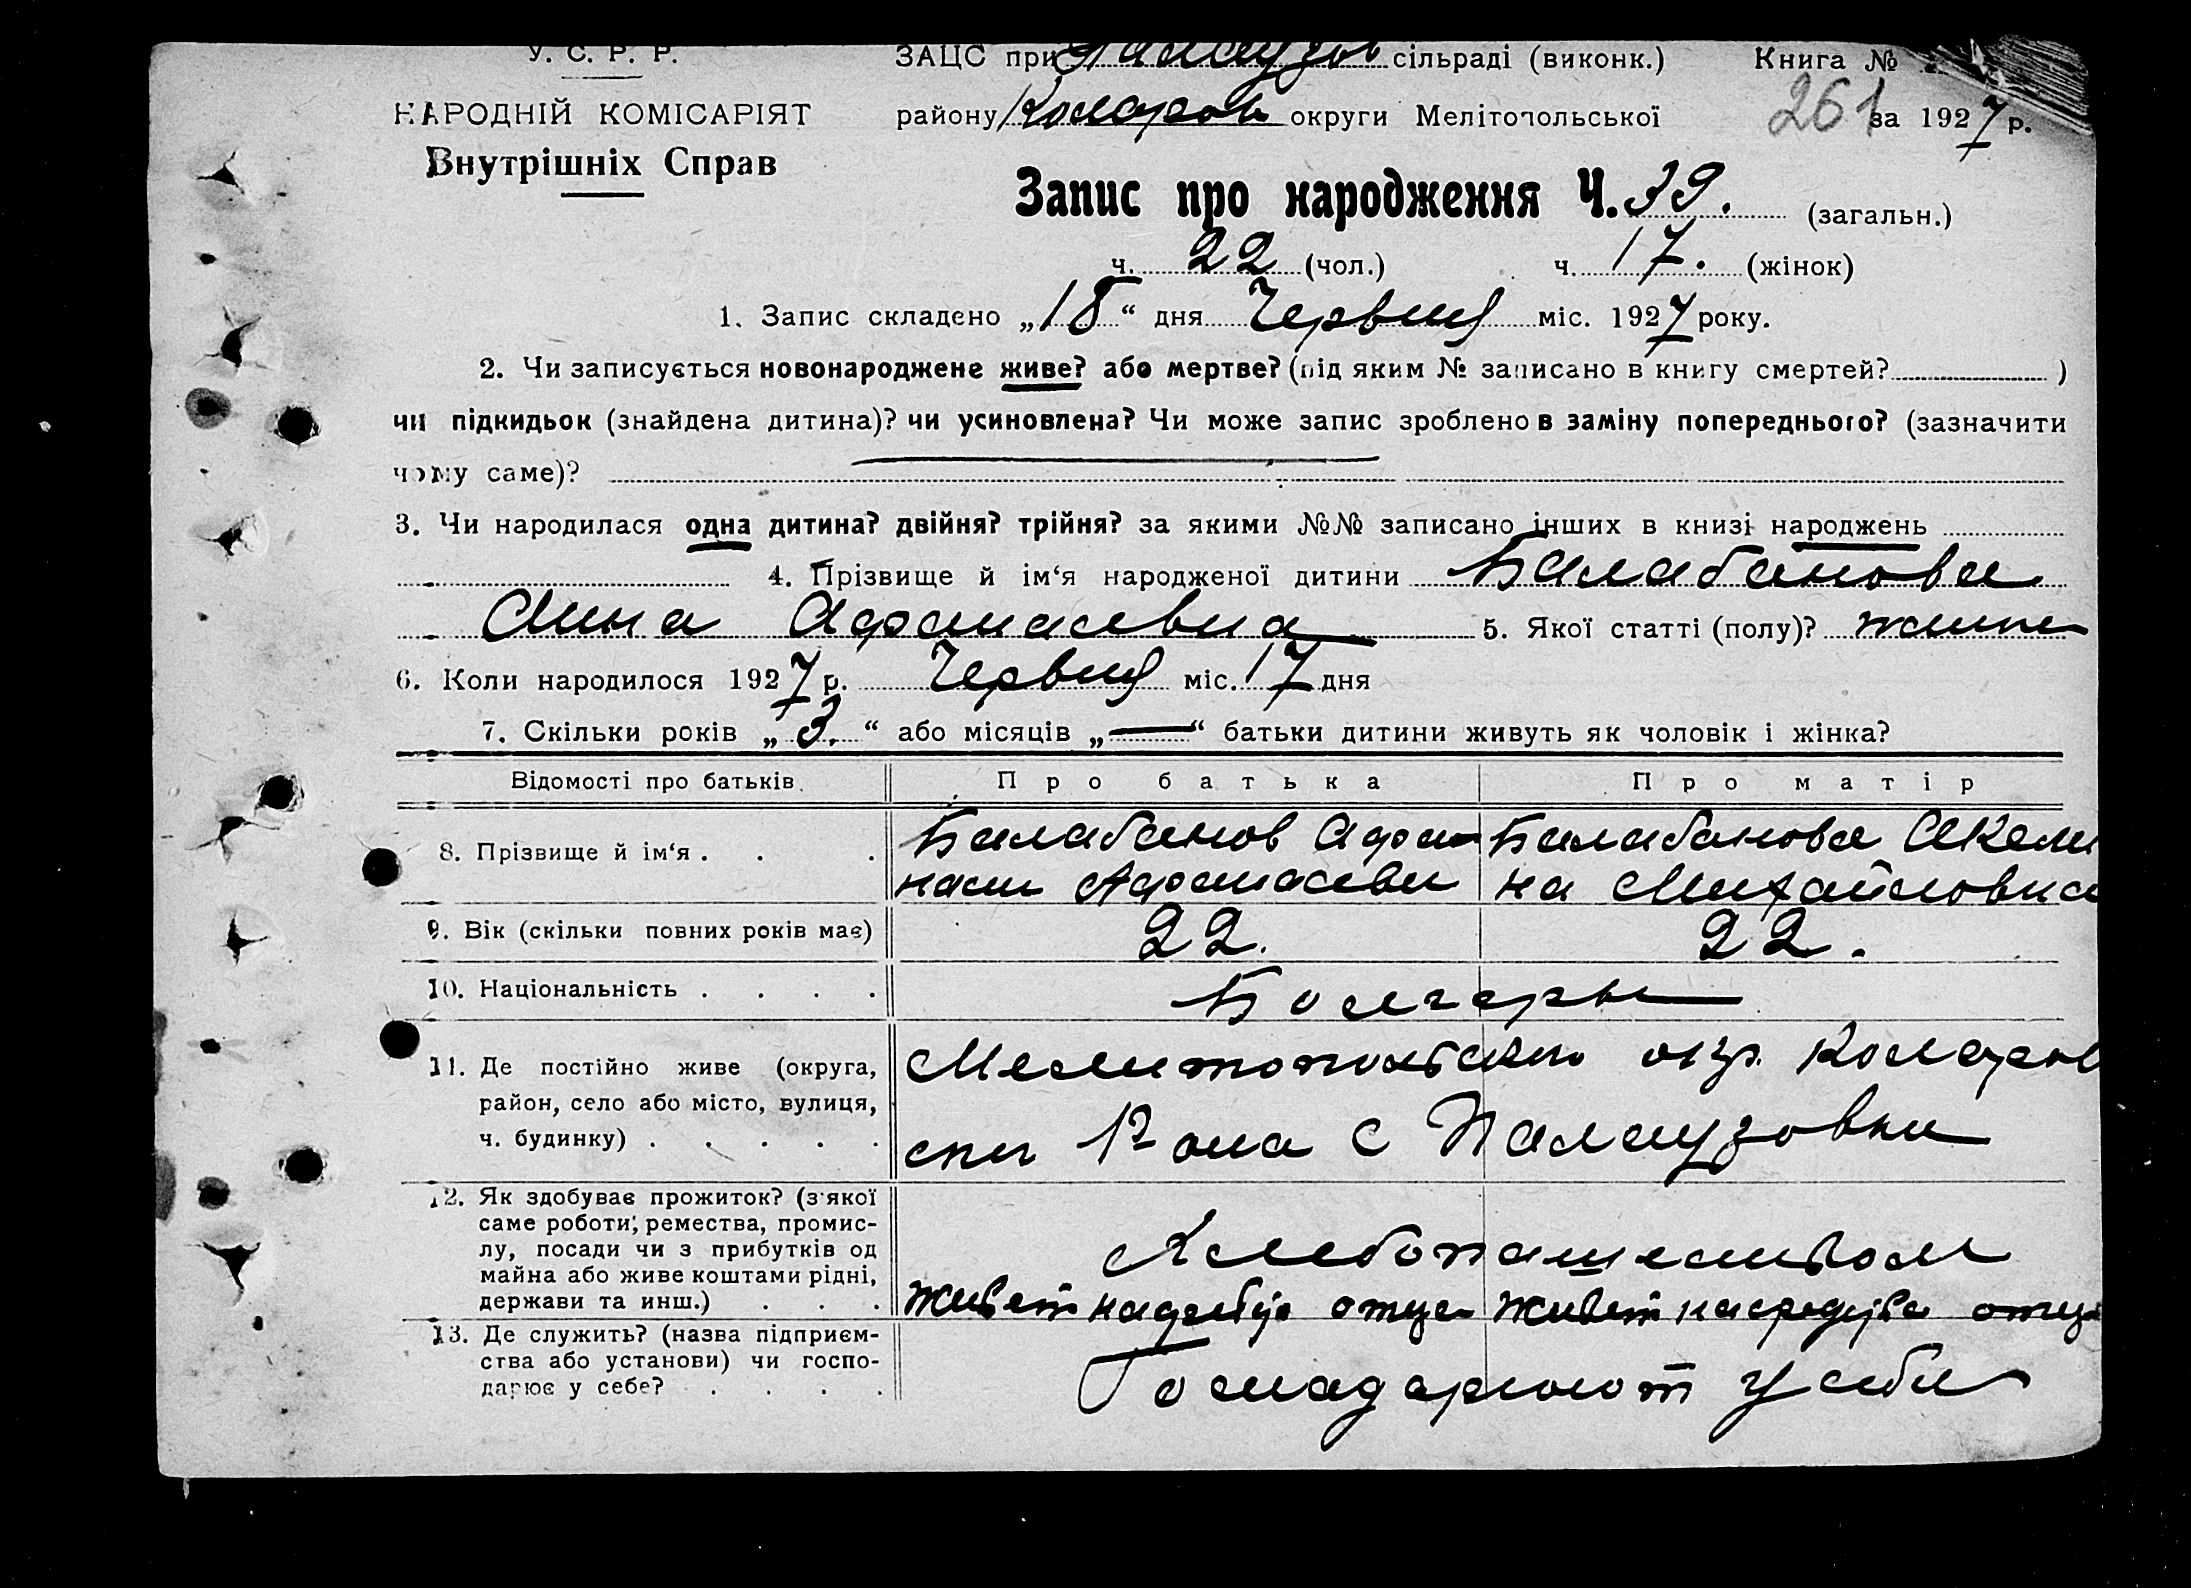 У. С. Р. Р.
НАРОДНІЙ КОМІСАРІЯТ
Внутрішніх Справ
ЗАЦС при Палаузов сільраді (виконк.) Книга №
району Коларов округи Мелітопольської 261 за 1927 р.
Запис про народження Ч. 39. (загальн.)
ч. 22 (чол.) ч. 17. (жінок)
1. Запис складено „18“ дня Червня міс. 1927 року.
2. Чи записується новонароджене живе? або мертве? (під яким № записано в книгу смертей? )
чи підкидьок (знайдена дитина)? чи усиновлена? Чи може запис зроблено в заміну попереднього? (зазначити
чому саме)?
3. Чи народилася одна дитина? двійня? трійня? за якими №№ записано інших в книзі народжень
4. Прізвище й ім‘я народженої дитини Балабанова
Анна Афанасевна 5. Якої статті (полу)?
6. Коли народилося 1927 р. Червня міс. 17 дня
7. Скільки років „3.“ або місяців „—“ батьки дитини живуть як чоловік і жінка?
Відомості про батьків. Про батька Про матір
8. Прізвище й ім‘я . . . Балабанов Афа Балабанова Акели
наси Афанасеви на Михайловна
9. Вік (скільки повних років має) 22. 22.
10. Національність . . . . Болгары
11. Де постійно живе (округа, Мелитопольского окр. Коларов
район, село або місто, вулиця,
ч. будинку) . . . . . ского Р-она с Палаузовки
12. Як здобуває прожиток? (з'якої
саме роботи, ремества, промис-
лу, посади чи з прибутків од Хлебопашеством
майна або живе коштами рідні,
держави та инш.) . . . живет отца живет на средства отца
13. Де служить? (назва підприєм-
ства або установи) чи госпо- Госпадарюют у себя
дарює у себе? . . . .